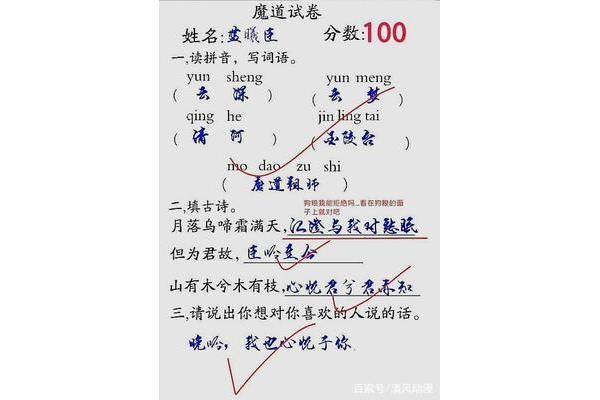 魔道试卷
姓名:蓝曦臣 分数:100
一,读拼音，写词语。
yun sheng yun meng
( 云 深 ) ( 云 梦 )
qing he jin ling tai
( 清 河 ) ( 金陵台 )
mo dao zu shi
( 魔道祖师 )
二,填古诗。
狗粮我能拒绝吗...看在狗粮的面
子上就对吧
月落乌啼霜满天,江澄与我对愁眠
但为君故,
山有木兮木有枝,心悦君兮君亦知
三,请说出你想对你喜欢的人说的话。
晚吟，我也心悦于你
百家号/清风动漫